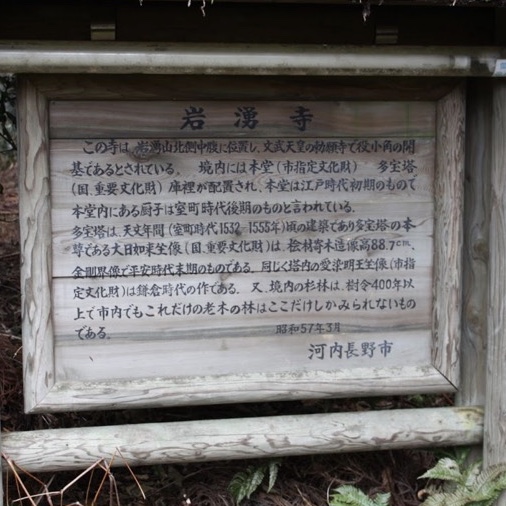 岩湧寺
この寺は、岩湧山北側中腹に位置し、文武天皇の勅願寺で役小角の開
基であるとされている。 境内には本堂（市指定文化財） 多宝塔
（国、重要文化財）庫裡が配置され、本堂は江戸時代初期のもので
本堂内にある厨子は室町時代後期のものと言われている。
多宝塔は、天文年間（室町時代1532－1555年）頃の建築であり多宝塔の本
尊である大日如来坐像（国、重要文化財）は、桧材寄木造像高88.7cm、
金剛界像で平安時代末期のものである。同じく塔内の愛染明王坐像（市指
定文化財）は鎌倉時代の作である。 又、境内の杉林は、樹令400年以
上で市内でもこれだけの老木の林はここだけしかみられないもの
である。
昭和57年3月
河内長野市